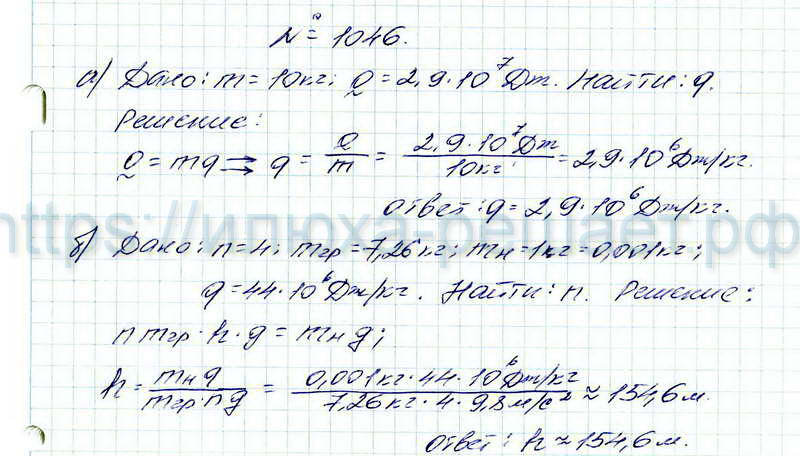 № 1046.
а) Дано: m = 10кг; Q = 2,9·10⁷Дж. Найти: q.
Решение:
Q = mq ⇒ q = Q/m = 2,9·10⁷Дж/10кг = 2,9·10⁶Дж/кг.
Ответ: q = 2,9·10⁶Дж/кг.
https://ипюха-решает.рф
б) Дано: n=4; mгр=7,26кг; mн=1кг=0,001кг;
q=44·10⁶Дж/кг. Найти: n. Решение:
n mгр·h·g = mнq;
h = mнq/mгр·ng = 0,001кг·44·10⁶Дж/кг/7,26кг·4·9,8м/с² ≈ 154,6м.
Ответ: h≈154,6м.